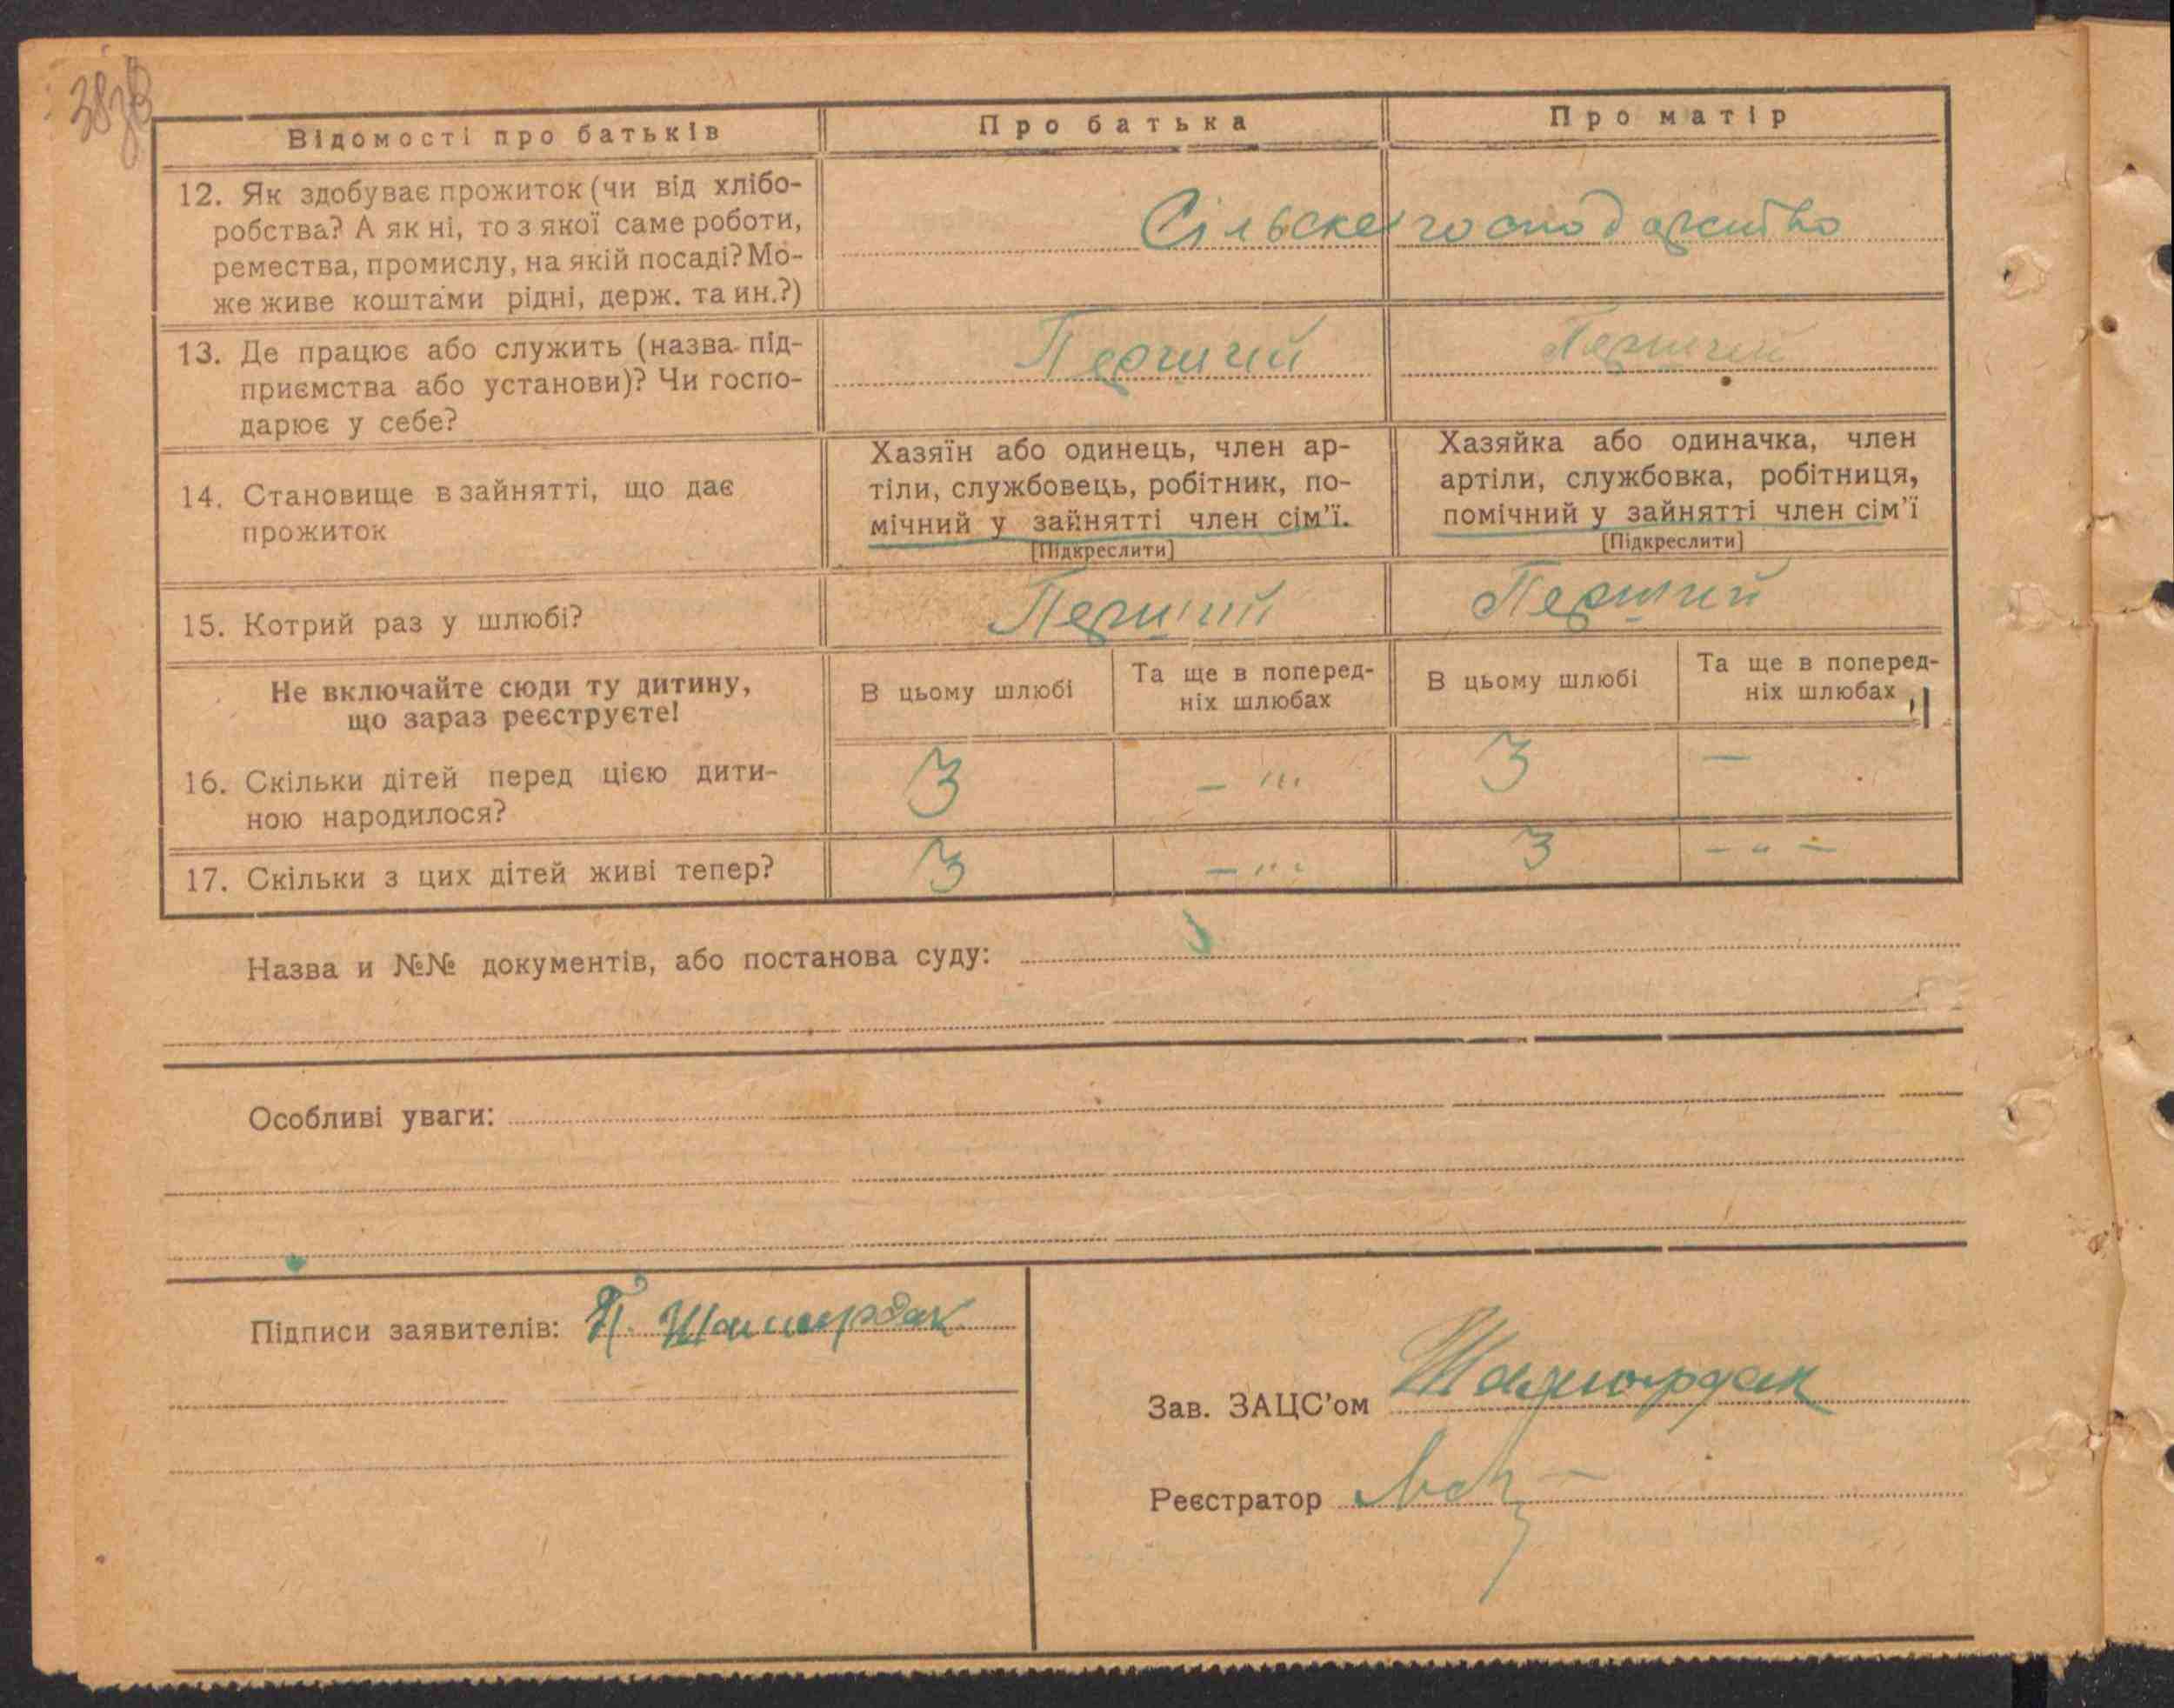 38зв
Відомості про батьків
Про батька
Про матір
12. Як здобуває прожиток (чи від хлібо-
робства? А як ні, то з якої саме роботи,
ремества, промислу, на якій посаді? Мо-
же живе коштами рідні, держ. та ин.?)
Сільське господарство
13. Де працює або служить (назва під-
приємства або установи)? Чи госпо-
дарює у себе?
Перший
Перший
14. Становище в зайнятті, що дає
прожиток
Хазяїн або одинець, член ар-
тіли, службовець, робітник, по-
мічний у зайнятті член сім'ї.
[Підкреслити]
Хазяйка або одиначка, член
артіли, службовка, робітниця,
помічний у зайнятті член сім'ї
[Підкреслити]
15. Котрий раз у шлюбі?
Перший
Перший
Не включайте сюди ту дитину,
що зараз реєструєте!
В цьому шлюбі
Та ще в поперед-
ніх шлюбах
В цьому шлюбі
Та ще в поперед-
ніх шлюбах
16. Скільки дітей перед цією дити-
ною народилося?
3
-
3
-
17. Скільки з цих дітей живі тепер?
3
-
3
- " -
Назва и №№ документів, або постанова суду:
Особливі уваги:
Підписи заявителів: П.
Зав. ЗАЦС'ом
Реєстратор